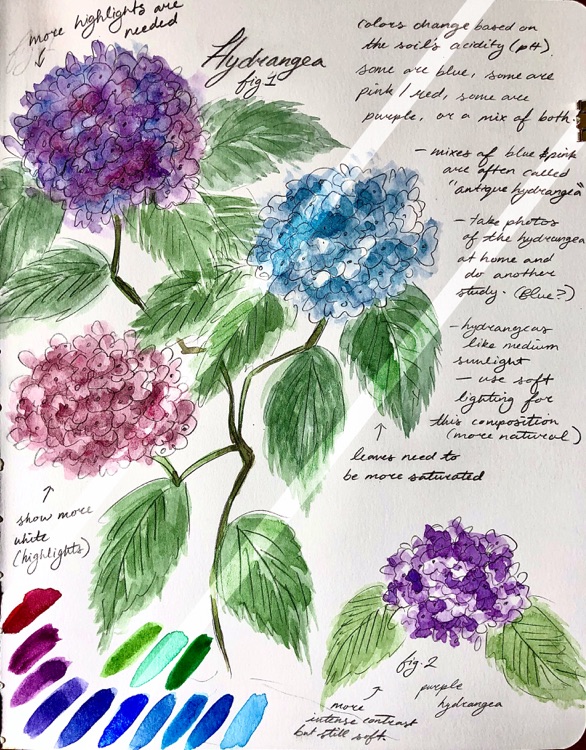 more highlights are
needed
Hydrangea
fig. 1
colors change based on
the soil's acidity (pH).
some are blue, some are
pink / red, some are
purple, or a mix of both.
- mixes of blue & pink
are often called
"antique hydrangea"
- take photos
of the hydrangea
at home and
do another
study. (Blue?)
- hydrangeas
like medium
sunlight
- use soft
lighting for
this composition
(more natural)
leaves need to
be more saturated
show more
white
(highlights)
fig. 2
purple
hydrangea
more
intense contrast
but still soft.